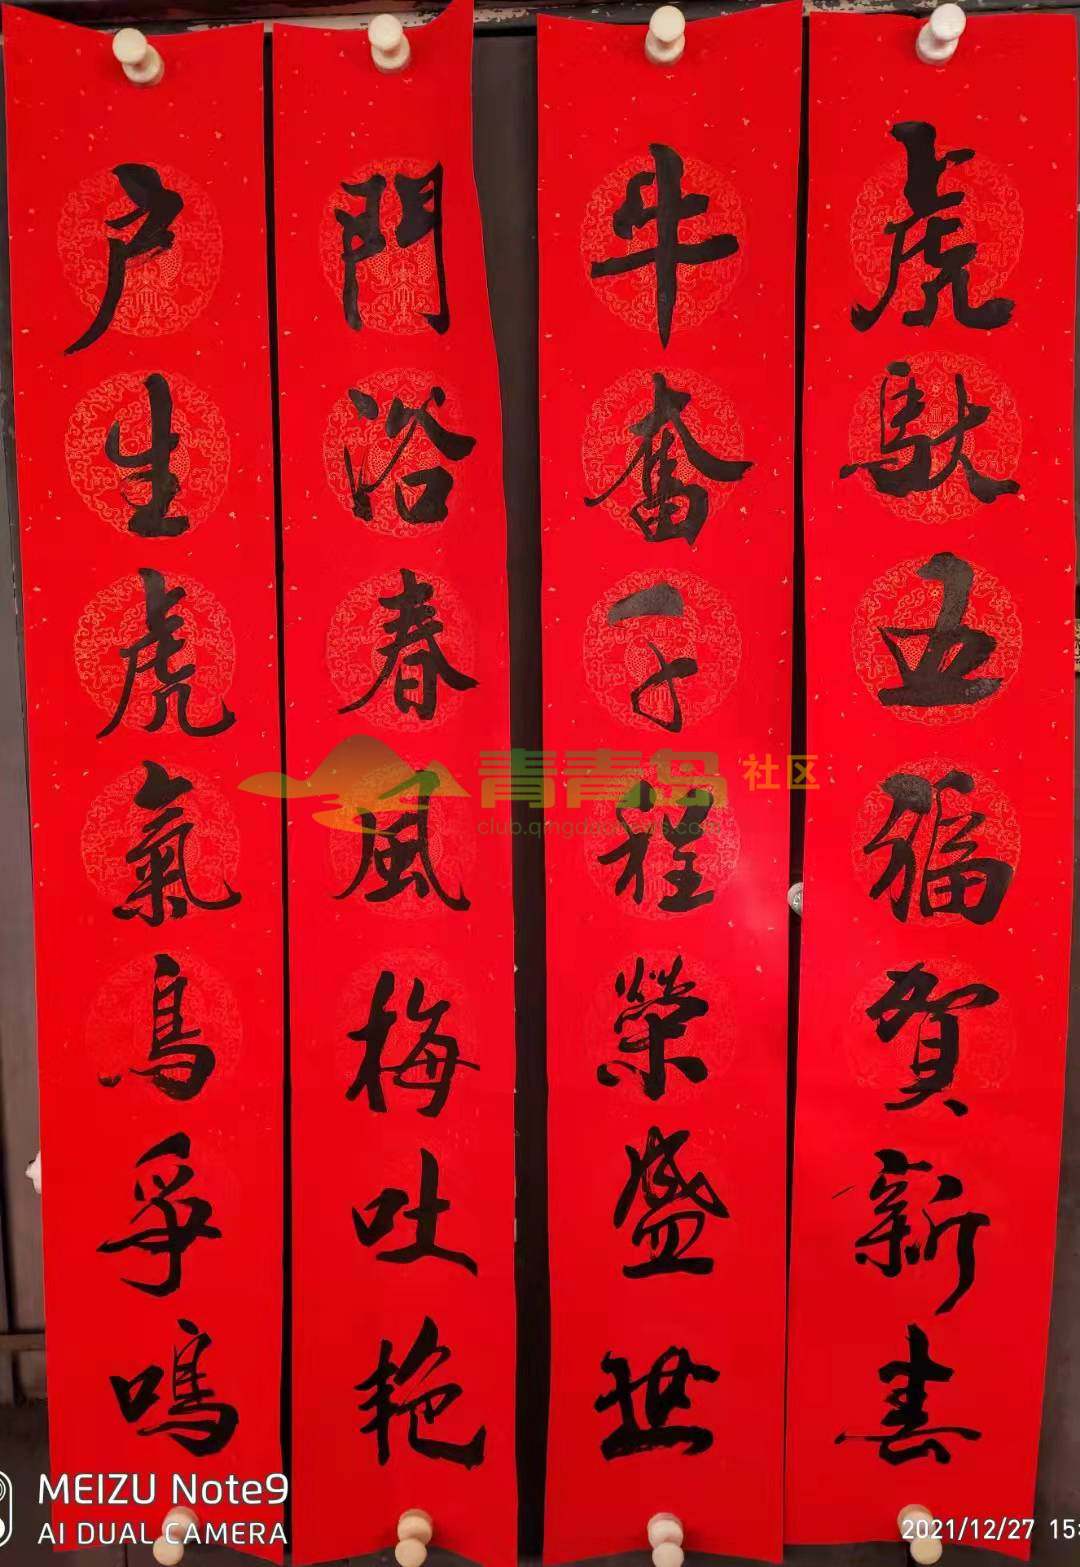 虎馱五福賀新春
牛奮千程榮盛世
門浴春風梅吐艳
户生虎氣鳥爭鳴
青青岛社区
club.qingdaonews.com
MEIZU Note9
AI DUAL CAMERA
2021/12/27 15: